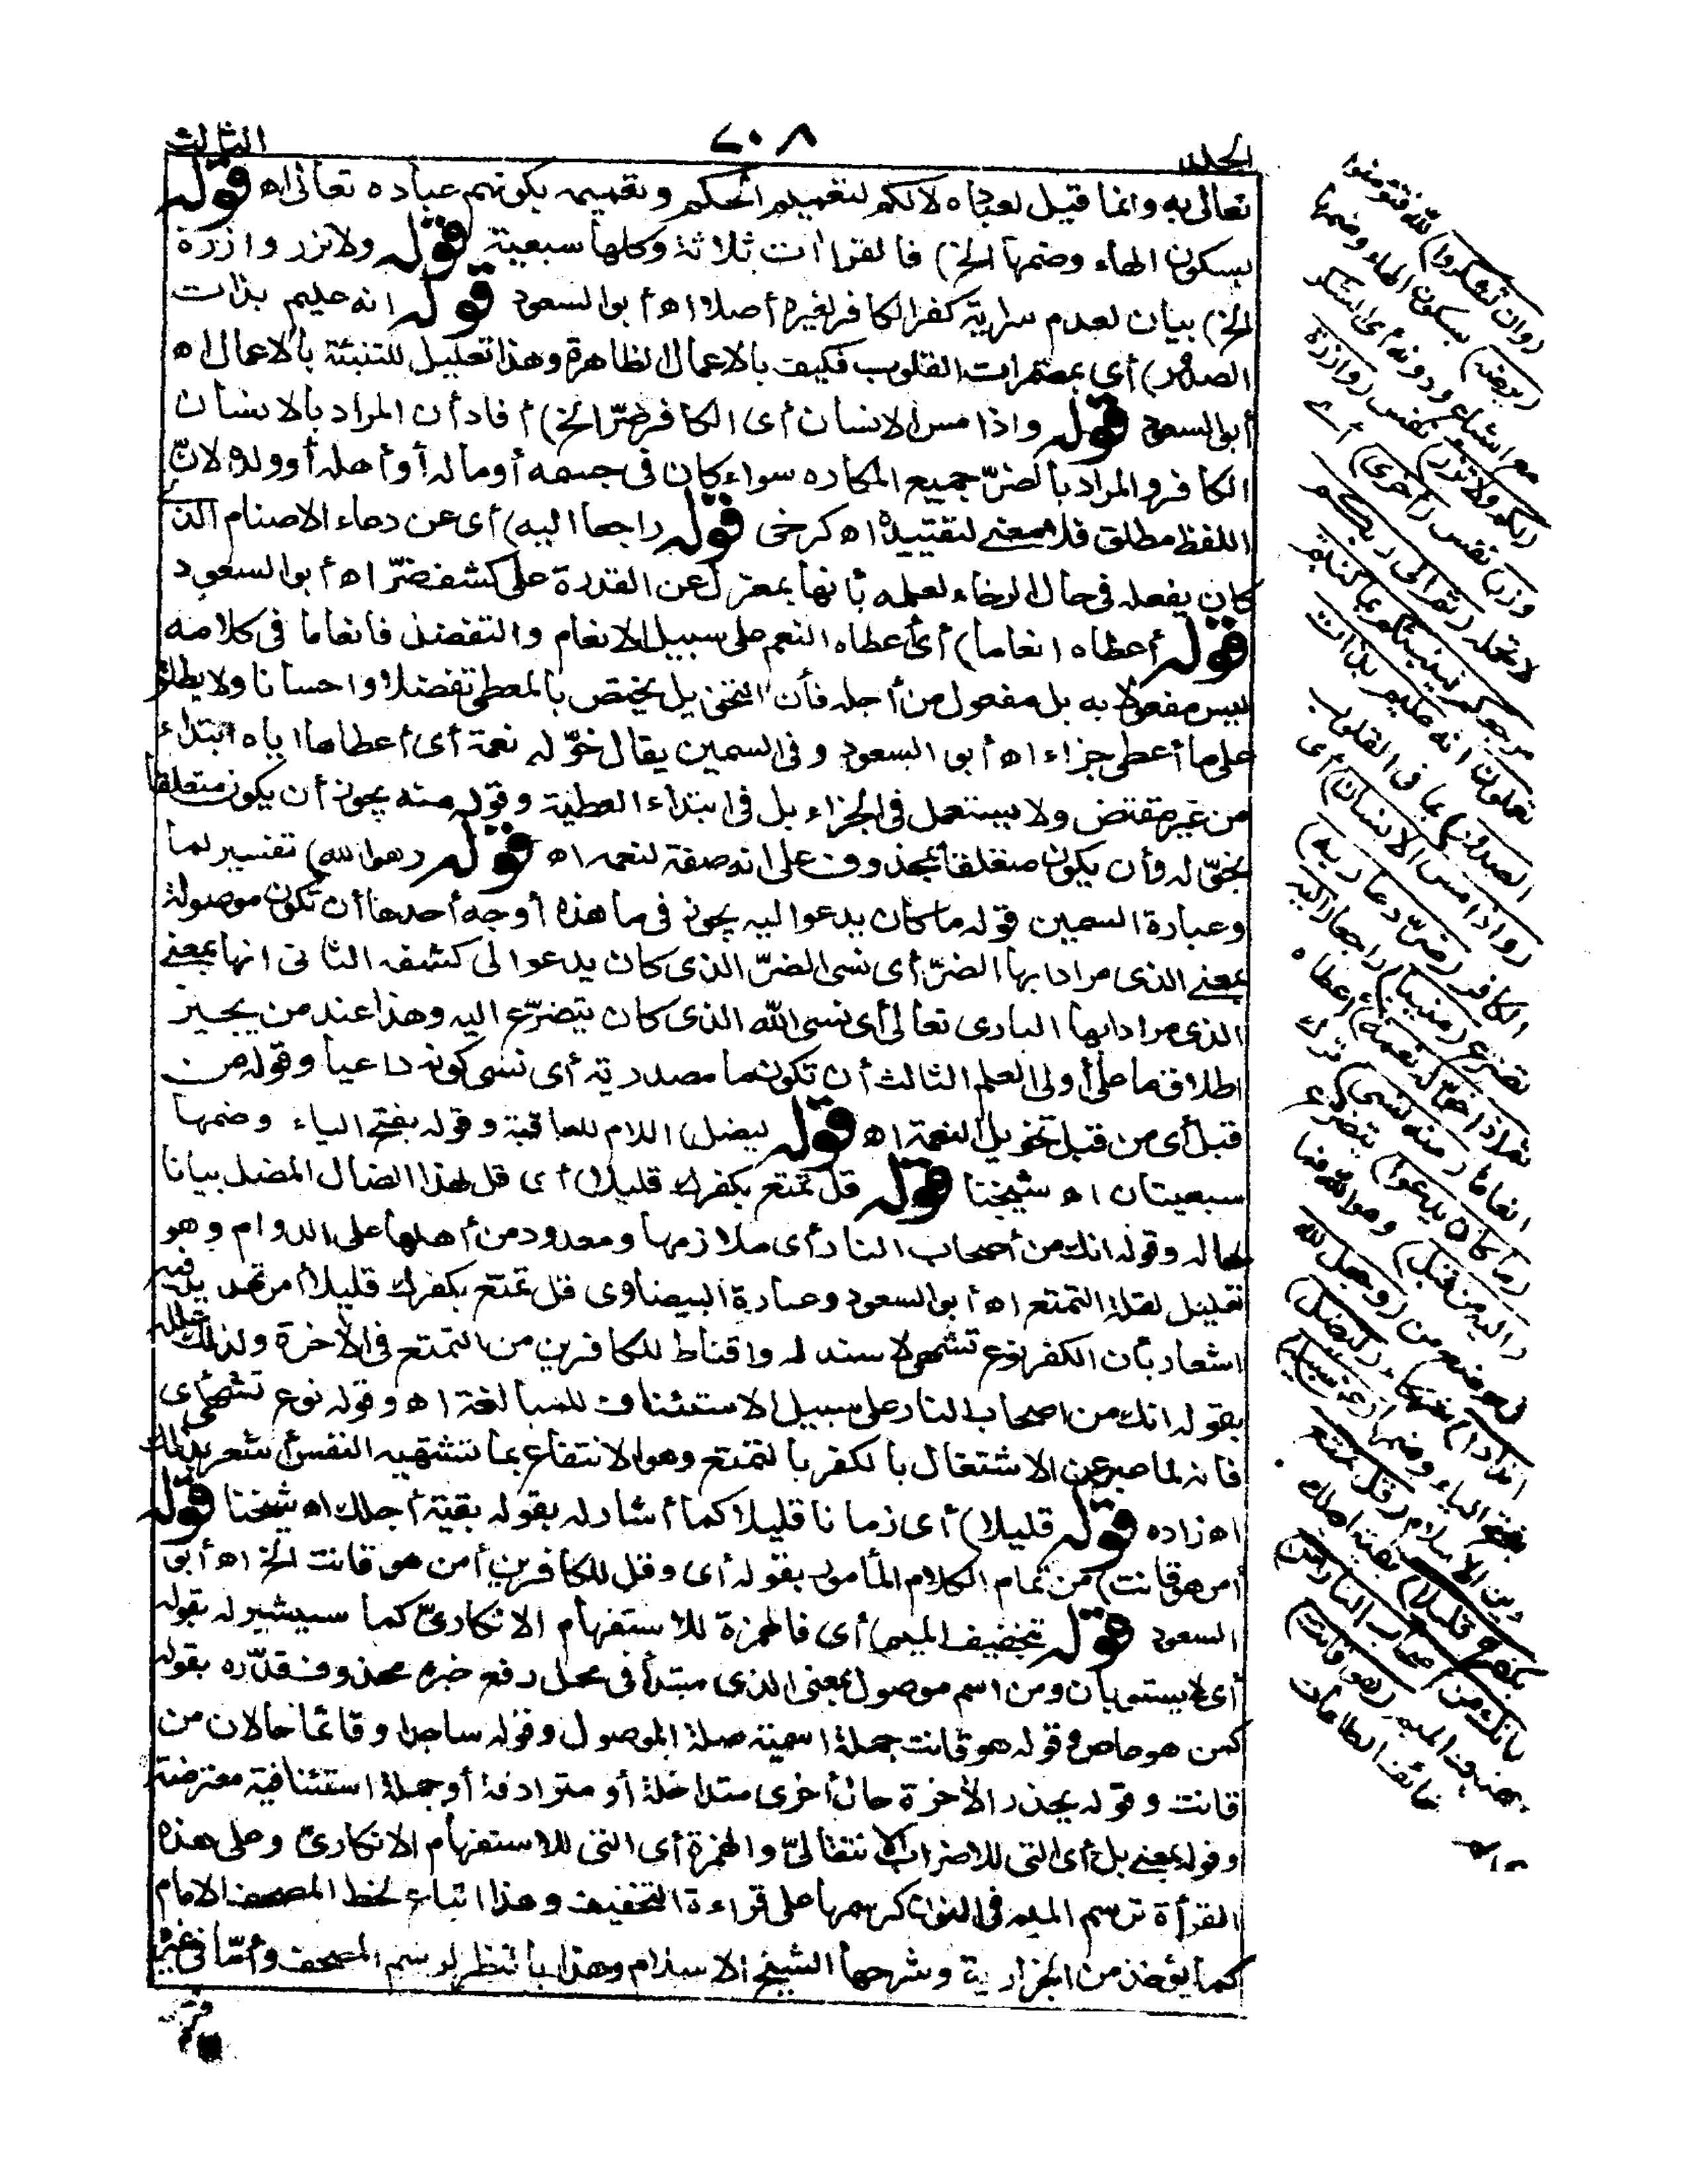 المجلد ٢٠٨ الثالث
تعالى به وانما قيل لعباده لا لكم لتعميم الحكم وتعميمه بكونهم عباده تعالى اه قوله
بسكون الهاء وضمها الخ) فالقراات ثلاثة وكلها سبعية قوله ولا تزر وازرة
الخ) بيان لعدم سراية كفر الكافر لغيره أصلا اه أبو السعود قوله انه عليم بذات
الصدور) أي بمضمرات القلوب فكيف بالاعمال الظاهرة وهذا تعليل للتنبئة بالاعمال اه
أبو السعود قوله واذا مس الانسان أى الكافر ضرّ الخ) أفاد أن المراد بالانسان
الكافر والمراد بالضرّ جميع المكاره سواء كان فى جسمه أو ماله أو أهله أو ولده لانّ
اللفظ مطلق فلا معنى لتقييده اه كرخى قوله راجعا اليه) أى عن دعاء الاصنام الذى
كان يفعله فى حال الرخاء لعلمه بأنها بمعزل عن القدرة على كشف ضرّ اه أبو السعود
قوله أعطاه انعاما) أى أعطاه النعم على سبيل الانعام والتفضل فانعاما فى كلامه
ليس مفعولا به بل مفعول من أجله فأن التخويل يختص بالمعطى تفضلا واحسانا ولا يطلق
على ما أعطى جزاء اه أبو السعود وفى السمين يقال خوّله نعمة أى أعطاها اياه ابتداء
من غير مقتض ولا يستعمل فى الجزاء بل فى ابتداء العطية وقوله منه يجوز أن يكون متعلقا
بخوّله وأن يكون متعلقا بمحذوف على انه صفة لنعمه اه قوله وهو الله) تفسير لما
وعبارة السمين قوله ما كان يدعوا اليه يجوز فى ما هذه أوجه أحدها أن تكون موصولة
بمعنى الذى مرادا بها الضرّ أى نسى الضرّ الذى كان يدعوا لى كشفه الثانى انها بمعنى
الذى مرادا بها البارى تعالى أى نسى الله الذى كان يتضرّع اليه وهذا عند من يجيز
اطلاق ما على أولى العلم الثالث أن تكون ما مصدرية أى نسى كونه داعيا وقوله من
قبل أى من قبل تخويل النعمة اه قوله ليضل) اللام للعاقبة وقوله بفتح الياء وضمها
سبعيتان اه شيخنا قوله قل تمتع بكفرك قليلا) أى قل لهذا الضال المضل بيانا
لحاله وقوله انك من أصحاب النار أى ملازمها ومعدود من أهلها على الدوام وهو
تعليل لقلة التمتع اه أبو السعود وعبارة البيضاوى قل تمتع بكفرك قليلا أمر تهديد فيه
اشعار بأن الكفر نوع تشهى لا سند له واقناط للكافرين من التمتع فى الآخرة ولذلك علله
بقوله انك من اصحاب النار على سبيل الاستئناف للمبالغة اه وقوله نوع تشهى أى
فانه لما عبر عن الاشتغال بالكفر بالتمتع وهو الانتفاع بما تشتهيه النفس أشعر بذلك
اه زاده قوله قليلا) أى زمانا قليلا كما أشار له بقوله بقية أجلك اه شيخنا قوله
أمن هو قانت) من تمام الكلام المأمور بقوله أى وقل للكافرين أمن هو قانت الخ اه أبو
السعود قوله بتخفيف الميم) أى فالهمزة للاستفهام الانكارىّ كما سيشير له بقوله
أى لا يستويان ومن اسم موصول بمعنى الذى مبتدأ فى محل رفع خبره محذوف قدّره بقوله
كمن هو عاص وقوله هو قانت جملة اسمية صلة الموصول وقوله ساجدا وقائما حالان من
قانت وقوله يحذر الآخرة حال أخرى متداخلة أو مترادفة أو جملة استئنافية معترضة
وقوله بمعنى بل أى التى للاضراب الانتقالىّ والهمزة أى التى للاستفهام الانكارىّ وعلى هذه
القرأة ترسم الميم فى النون كرسمها على قراءة التخفيف وهذا اتباع لخط المصحف الامام
كما يؤخذ من الجزارية وشرحها الشيخ الاسلام وهذا بالنظر لرسم المصحف وأمّا فى غيره
(وان تشكروا) الله فتؤمنوا
(يرضه) بسكون الهاء وضمها
مع اشباع ودونه أى الشكر
(لكم ولا تزر) نفس (وازرة
وزر) نفس (أخرى) أى
لا تحمله (ثم الى ربكم
مرجعكم فينبئكم بما كنتم
تعملون انه عليم بذات
الصدور) بما فى القلوب
(واذا مس الانسان) أى
الكافر (ضرّ دعا ربه)
تضرع (منيبا) راجعا (اليه
ثم اذا خوّله نعمة) أعطاه
انعاما (منه نسى) ترك
(ما كان يدعوا) يتضرع
(اليه من قبل) وهو الله فما
فى موضع من (وجعل لله
اندادا) شركاء (ليضل)
بفتح الياء وضمها (عن سبيله)
دين الاسلام (قل تمتع
بكفرك قليلا) بقية اجلك
(انك من أصحاب النار أمن)
بتخفيف الميم (هو قانت)
قائم بالطاعات